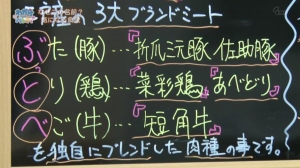 種の3大ブランドミート
ぶた(豚)…折爪三元豚 佐助豚
とり(鶏)…菜彩鶏 あべどり
べご(牛)…短角牛
を独自にブレンドした肉種の事です。